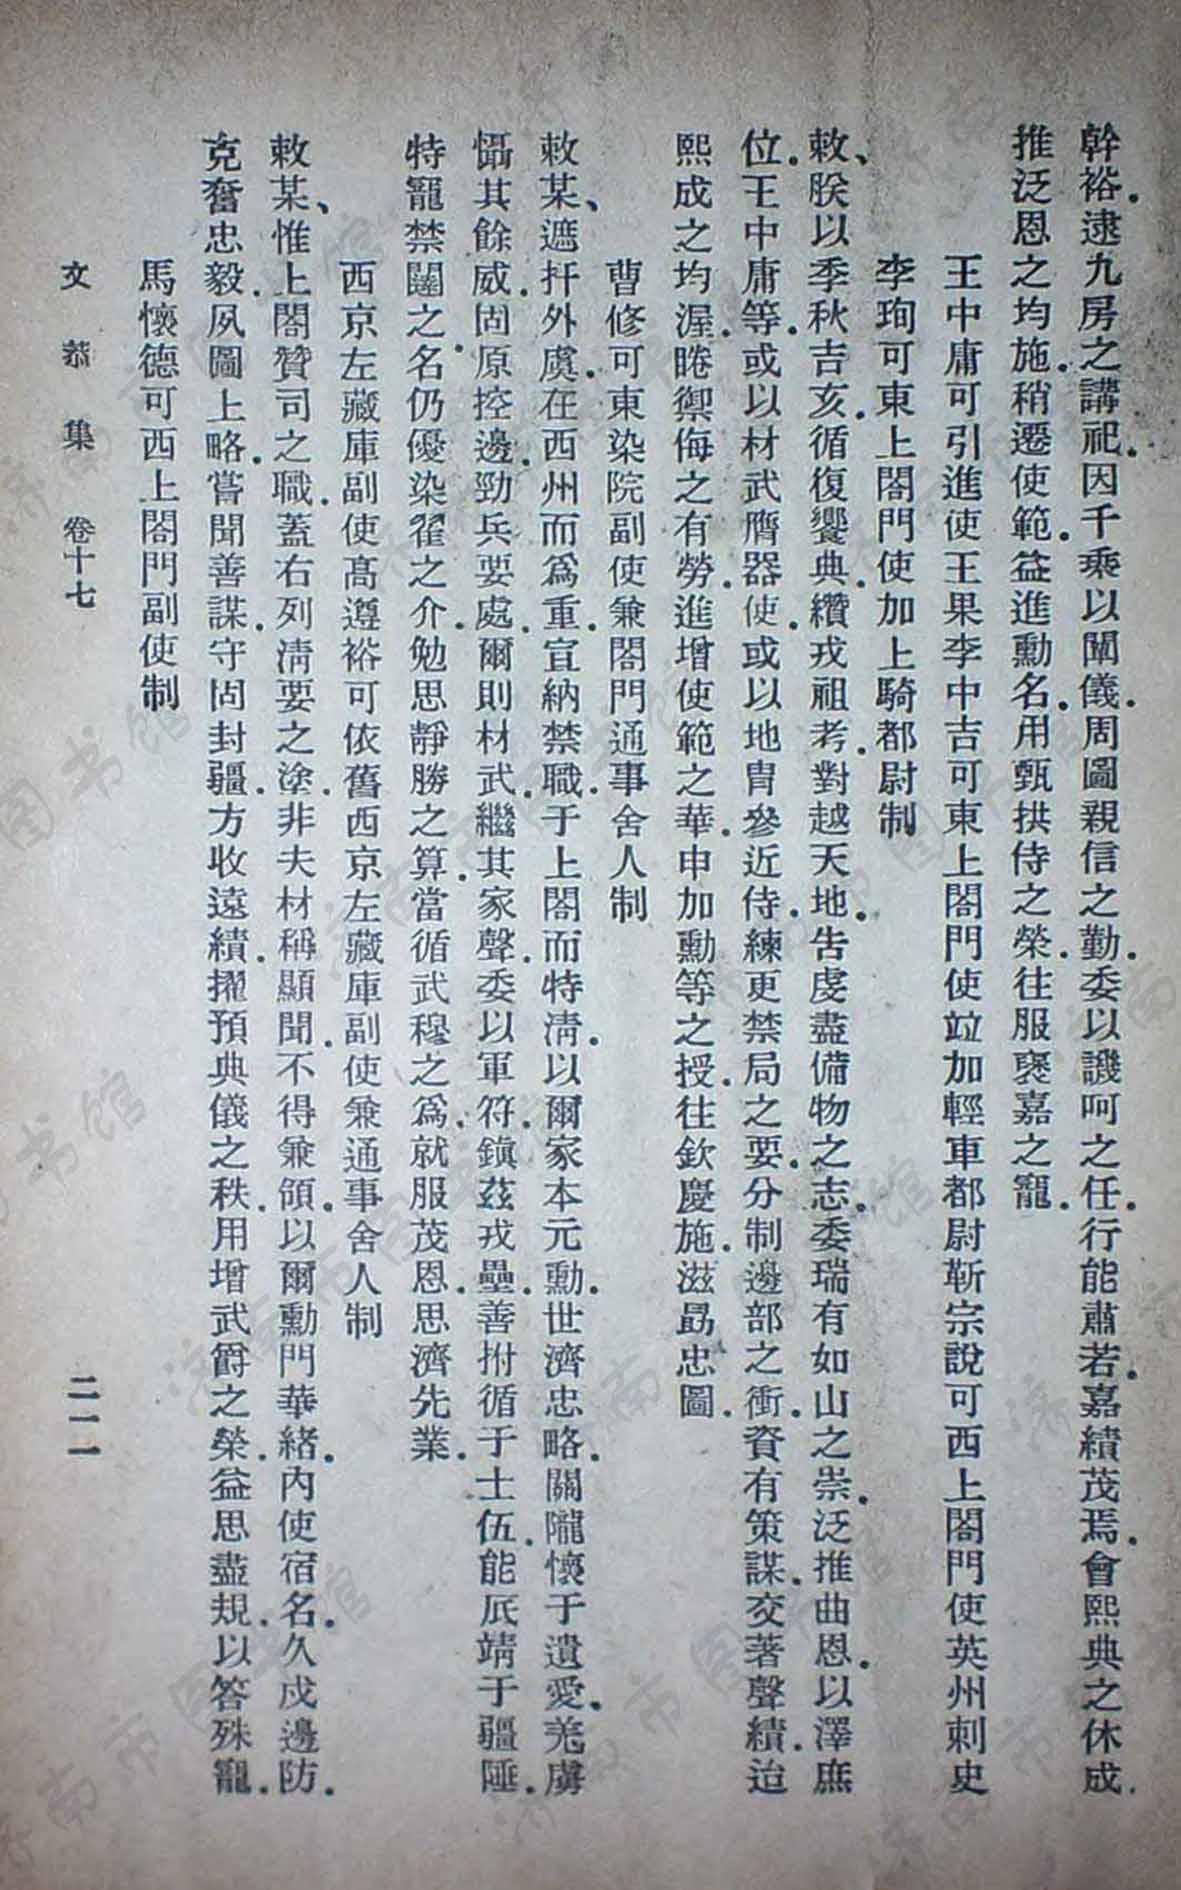 幹裕.逮九房之講祀.因千乘以闈儀.周圖親信之勤.委以譏呵之任.行能肅若.嘉績茂焉.會熙典之休成.
推泛恩之均施.稍遷使範.益進勳名.用甄拱侍之榮.往服褒嘉之寵.
王中庸可引進使王果李中吉可東上閤門使竝加輕車都尉靳宗說可西上閤門使英州刺史
李珣可東上閤門使加上騎都尉制
敕、朕以季秋吉亥.循復饗典.纘戎祖考.對越天地.吿虔盡備物之志.委瑞有如山之崇.泛推曲恩.以澤庶
位.王中庸等.或以材武膺器使.或以地胄參近侍.練更禁局之要.分制邊部之衝.資有策謀.交著聲績.迨
熙成之均渥.睠禦侮之有勞.進增使範之華.申加勳等之授.往欽慶施.滋勗忠圖.
曹修可東染院副使兼閤門通事舍人制
敕某、遮扞外虞.在西州而爲重.宜納禁職.于上閤而特淸.以爾家本元勳.世濟忠略.關隴懷于遺愛.羌虜
懾其餘威.固原控邊.勁兵要處.爾則材武.繼其家聲.委以軍符.鎭茲戎壘.善拊循于士伍.能厎靖于疆陲.
特寵禁闥之名.仍優染翟之介.勉思靜勝之算.當循武穆之爲.就服茂恩.思濟先業.
西京左藏庫副使高遵裕可依舊西京左藏庫副使兼通事舍人制
敕某、惟上閤贊司之職.蓋右列淸要之塗.非夫材稱顯聞.不得兼領.以爾勳門華緒.內使宿名.久戍邊防.
克奮忠毅.夙圖上略.嘗聞善謀.守固封疆.方收遠績.擢預典儀之秩.用增武爵之榮.益思盡規.以答殊寵.
馬懷德可西上閤門副使制
文恭集 卷十七 二一一